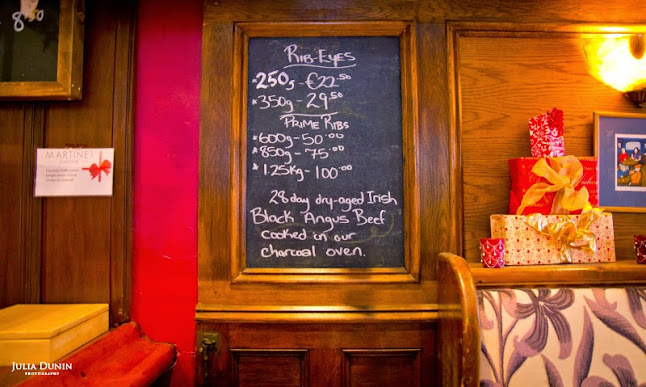 8.50
MARTINEI
Rib-Eyes
*250g - €22.50
*350g - 29.50
Prime Ribs
*600g - 50.00
*850g - 75.00
*1.25kg - 100.00
28 day dry-aged Irish
Black Angus Beef
cooked in our
charcoal oven.
Julia Dunin
PHOTOGRAPHY